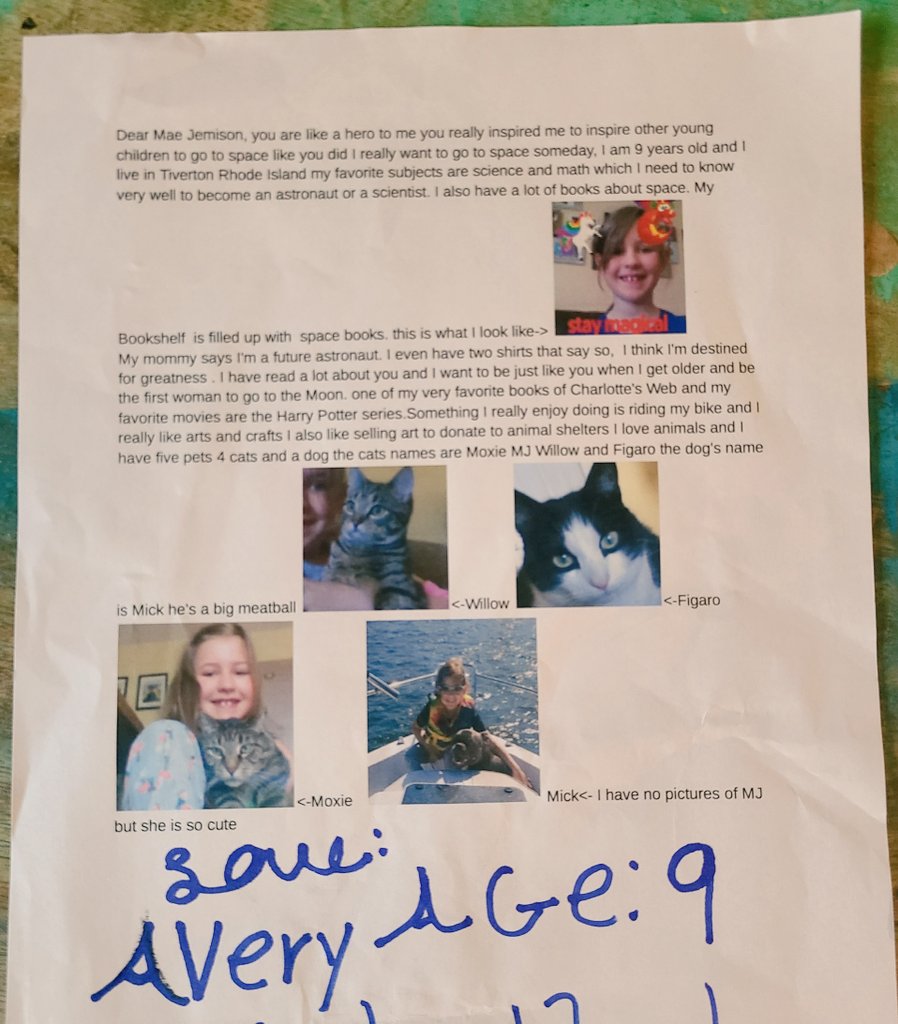 Dear Mae Jemison, you are like a hero to me you really inspired me to inspire other young
children to go to space like you did I really want to go to space someday, I am 9 years old and I
live in Tiverton Rhode Island my favorite subjects are science and math which I need to know
very well to become an astronaut or a scientist. I also have a lot of books about space. My
stay magical
Bookshelf is filled up with space books. this is what I look like->
My mommy says I'm a future astronaut. I even have two shirts that say so, I think I'm destined
for greatness . I have read a lot about you and I want to be just like you when I get older and be
the first woman to go to the Moon. one of my very favorite books of Charlotte's Web and my
favorite movies are the Harry Potter series.Something I really enjoy doing is riding my bike and I
really like arts and crafts I also like selling art to donate to animal shelters I love animals and I
have five pets 4 cats and a dog the cats names are Moxie MJ Willow and Figaro the dog's name
is Mick he's a big meatball <-Willow <-Figaro
<-Moxie Mick<- I have no pictures of MJ
but she is so cute
Avery AGe: 9